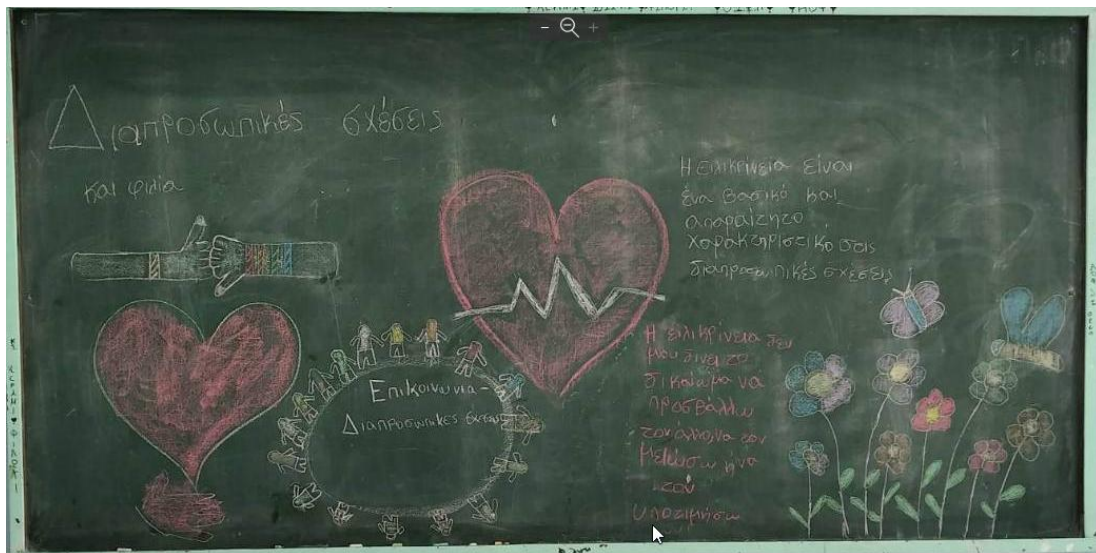 Διαπροσωπικές σχέσεις
και φιλία
Επικοινωνια -
Διαπροσωπικες σχεσεις
Η ειλικρίνεια είναι
ένα βασικό και
απαραίτητο
χαρακτηριστικό στις
διαπροσωπικές σχέσεις
Η ειλικρίνεια δεν
μου δινει το
δικαίωμα να
προσβάλλω
τον άλλον να τον
μειώσω ή να
τον
υποτιμήσω